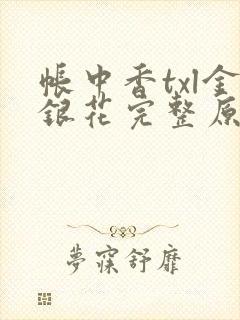 帳中香txl金
銀花完整原
夢寐舒靡